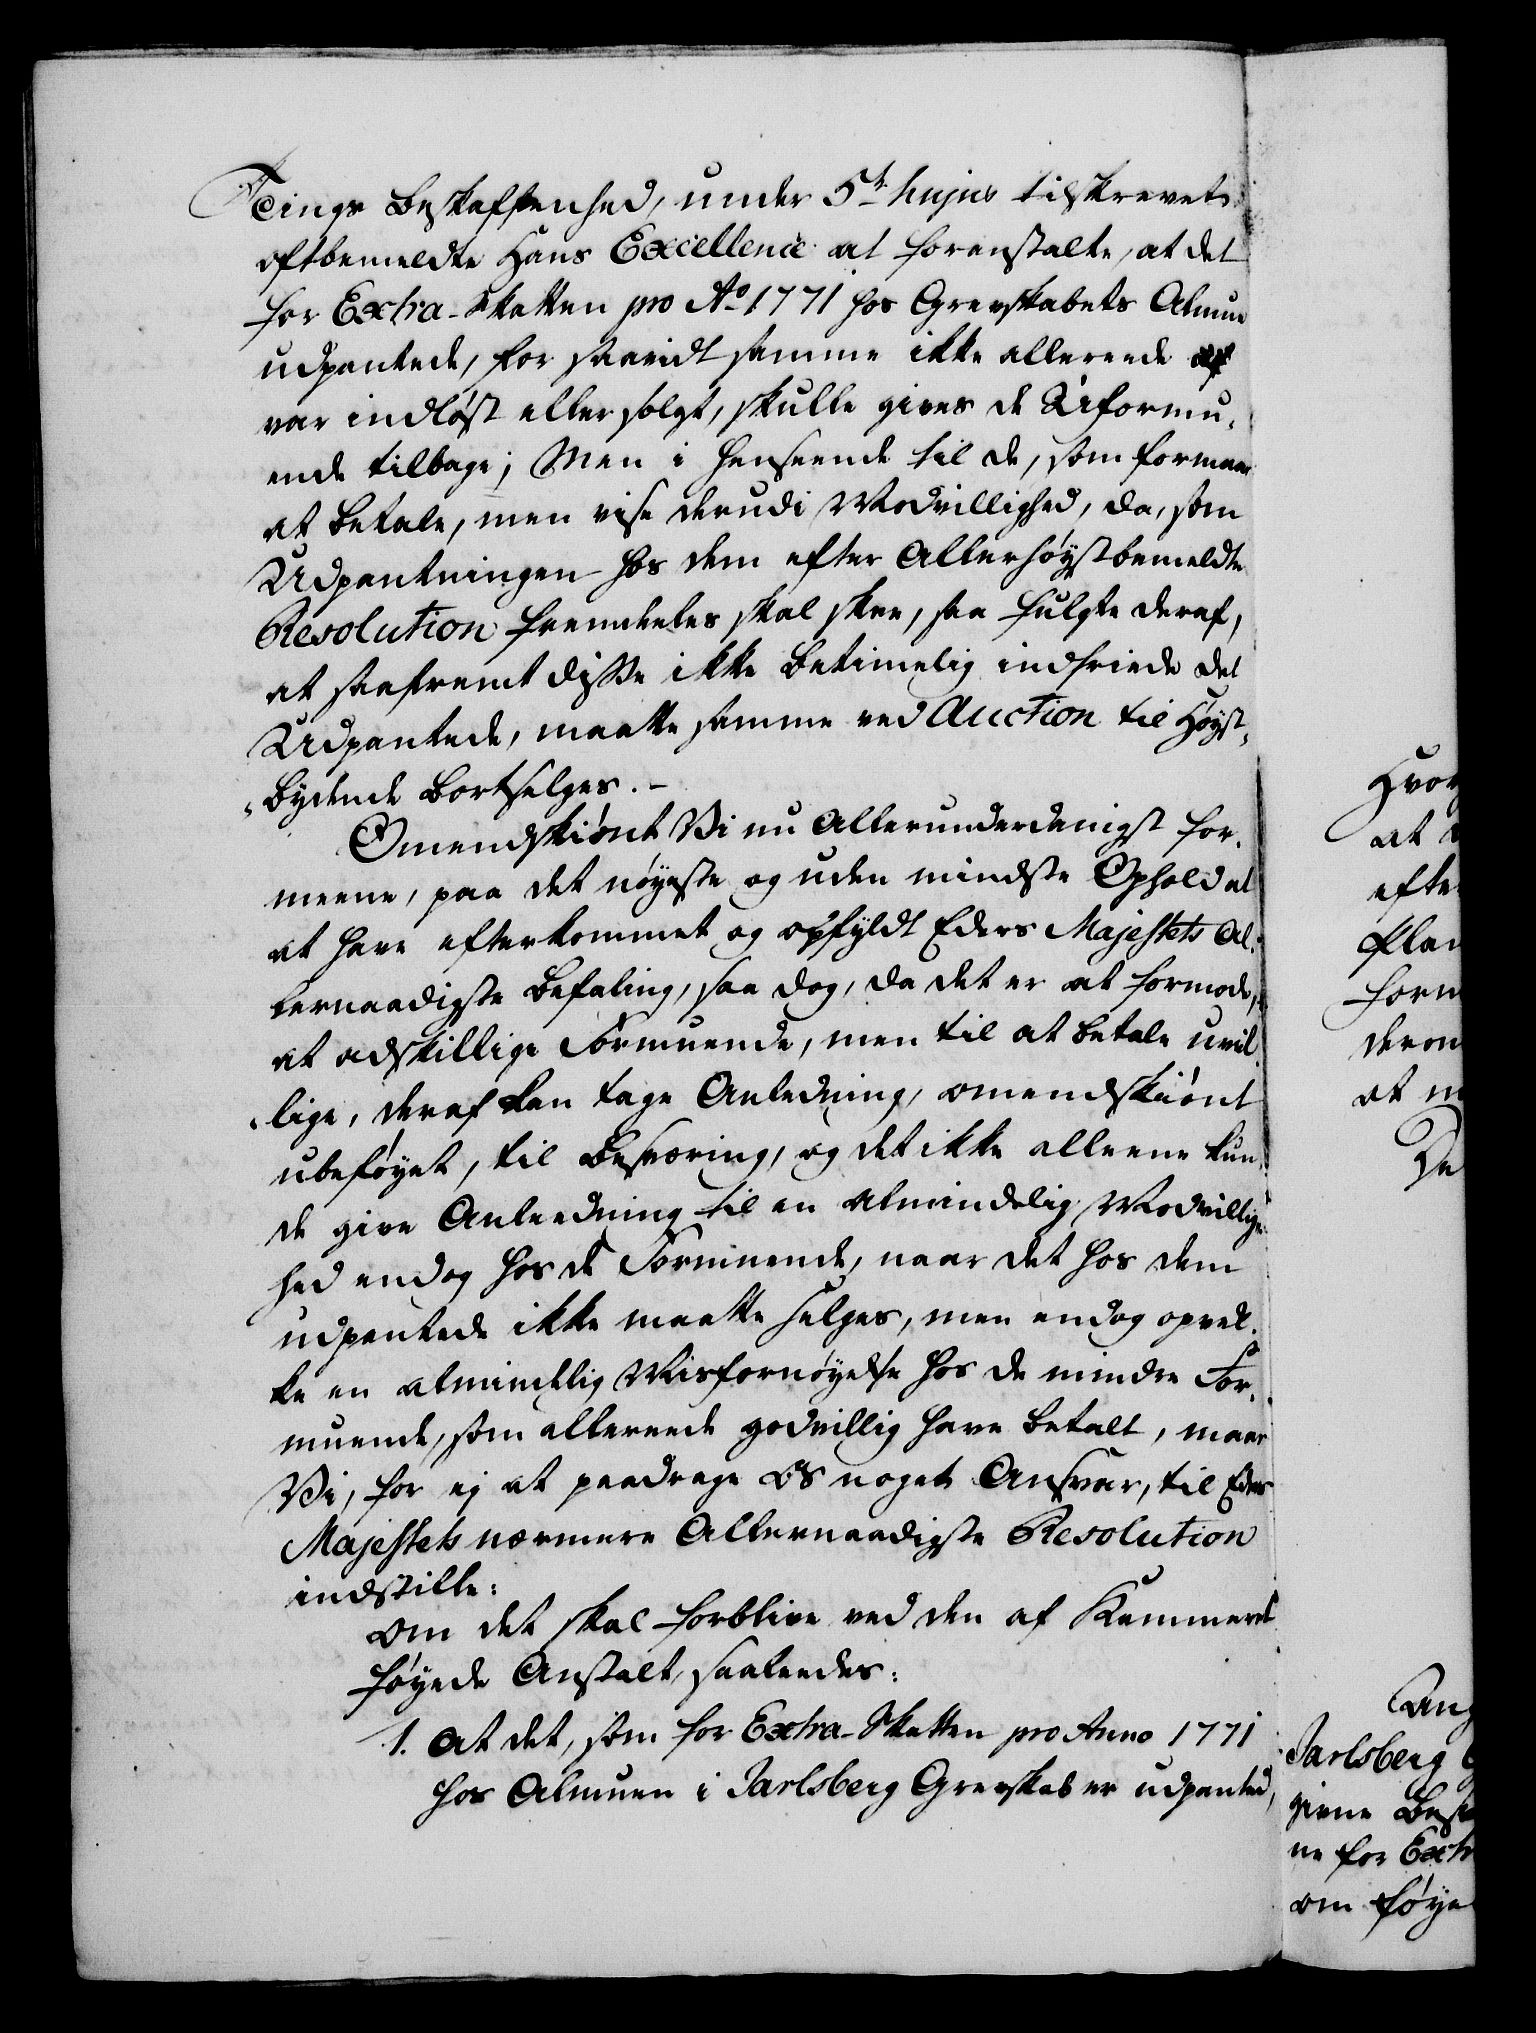 Tings Beskaffenhed, under 5te hujus tilskrevet
oftbemeldte Hans Excellence at foranstalte, at det
for Extra-Skatten pro Ao 1771 hos Grevskabets Almue
udpantede, for saavidt samme ikke allereede
var indløst eller solgt, skulle gives de Uformu-
ende tilbage; Men i Henseende til de, som formaae
at betale, men vise derudi Modvillighed, da, som
Udpantningen hos dem efter Allerhøystbemeldte
Resolution fremdeeles skal skee, saa fulgte deraf,
at saafremt disse ikke betimelig indfriede det
Udpantede, maatte samme ved Auction til Høyst-
bydende bortselges.-
Omendskiønt Vi nu Allerunderdanigst for-
meene, paa det nøyeste og uden mindste Ophold at
at have efterkommet og opfyldt Eders Majestets Al-
lernaadigste Befaling, saa dog, da det er at formode,
at adskillige Formuende, men til at betale uvil-
lige, deraf kan tage Anledning, omendskiønt
ubeføyet, til Besværing, og det ikke alleene kun-
de give Anleedning til en almindelig Modvillig-
hed endog hos de Formuende, naar det hos dem
udpantede ikke maatte selges, men endog opvek-
ke en almindelig Misfornøyelse hos de mindre For-
muende, som allereede godvillig have betalt, maae
Vi, for ej at paadrage os noget Ansvar, til Eders
Majestets nærmere Allernaadigste Resolution
indstille:
Om det skal forblive ved den af Kammeret
føyede Anstalt, saaleedes:
1. At det, som for Extra-Skatten pro Anno 1771
hos Almuen i Jarlsberg Grevskab er udpantet,
at
efte
form
at m
De
Ang
Jarlsberg
givne
ne for Ext
om føye